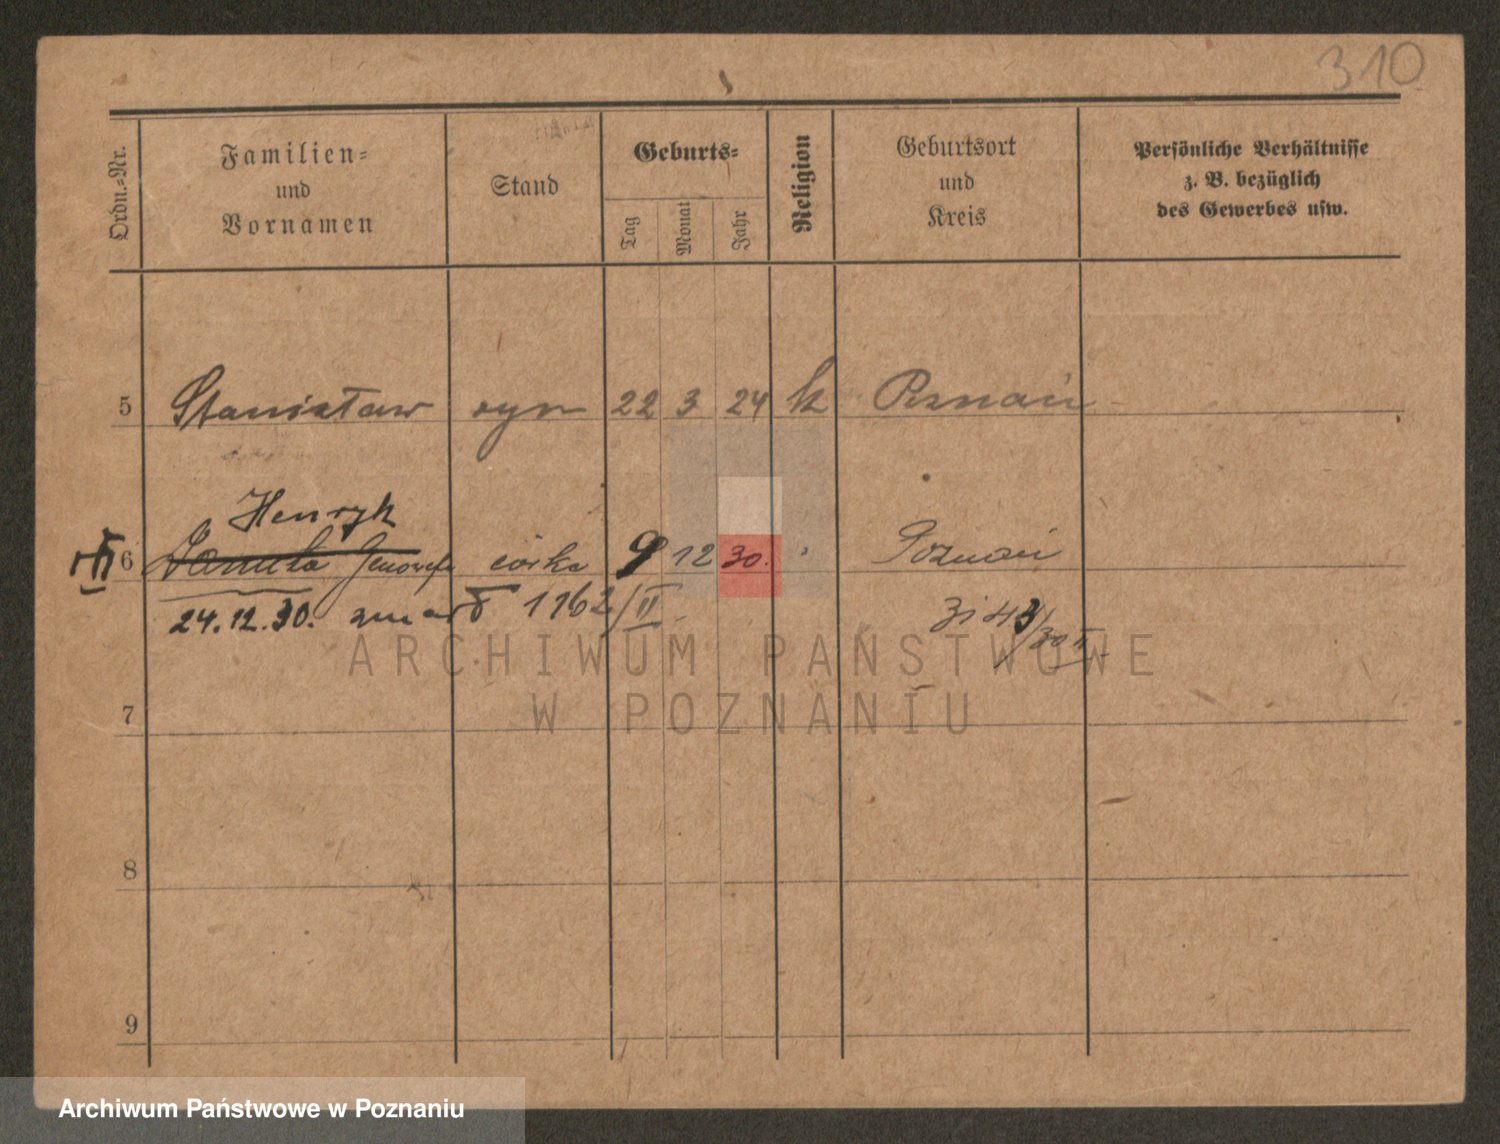 310
Ordn.=Nr.
Familien=
und
Vornamen
Stand
Geburts=
Tag
Monat
Jahr
Religion
Geburtsort
und
Kreis
Persönliche Verhältnisse
z. B. bezüglich
des Gewerbes usw.
5 Stanisław syn 22 3 24 k Poznań
Henryk
6 Danuta Genowefa córka 9 12 30. Poznań
24.12.30. zmarł 1162/II
7
8
9
ARCHIWUM PAŃSTWOWE
W POZNANIU
Archiwum Państwowe w Poznaniu